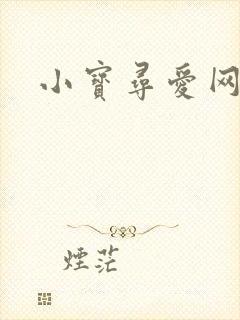 小寶尋愛网
煙茫